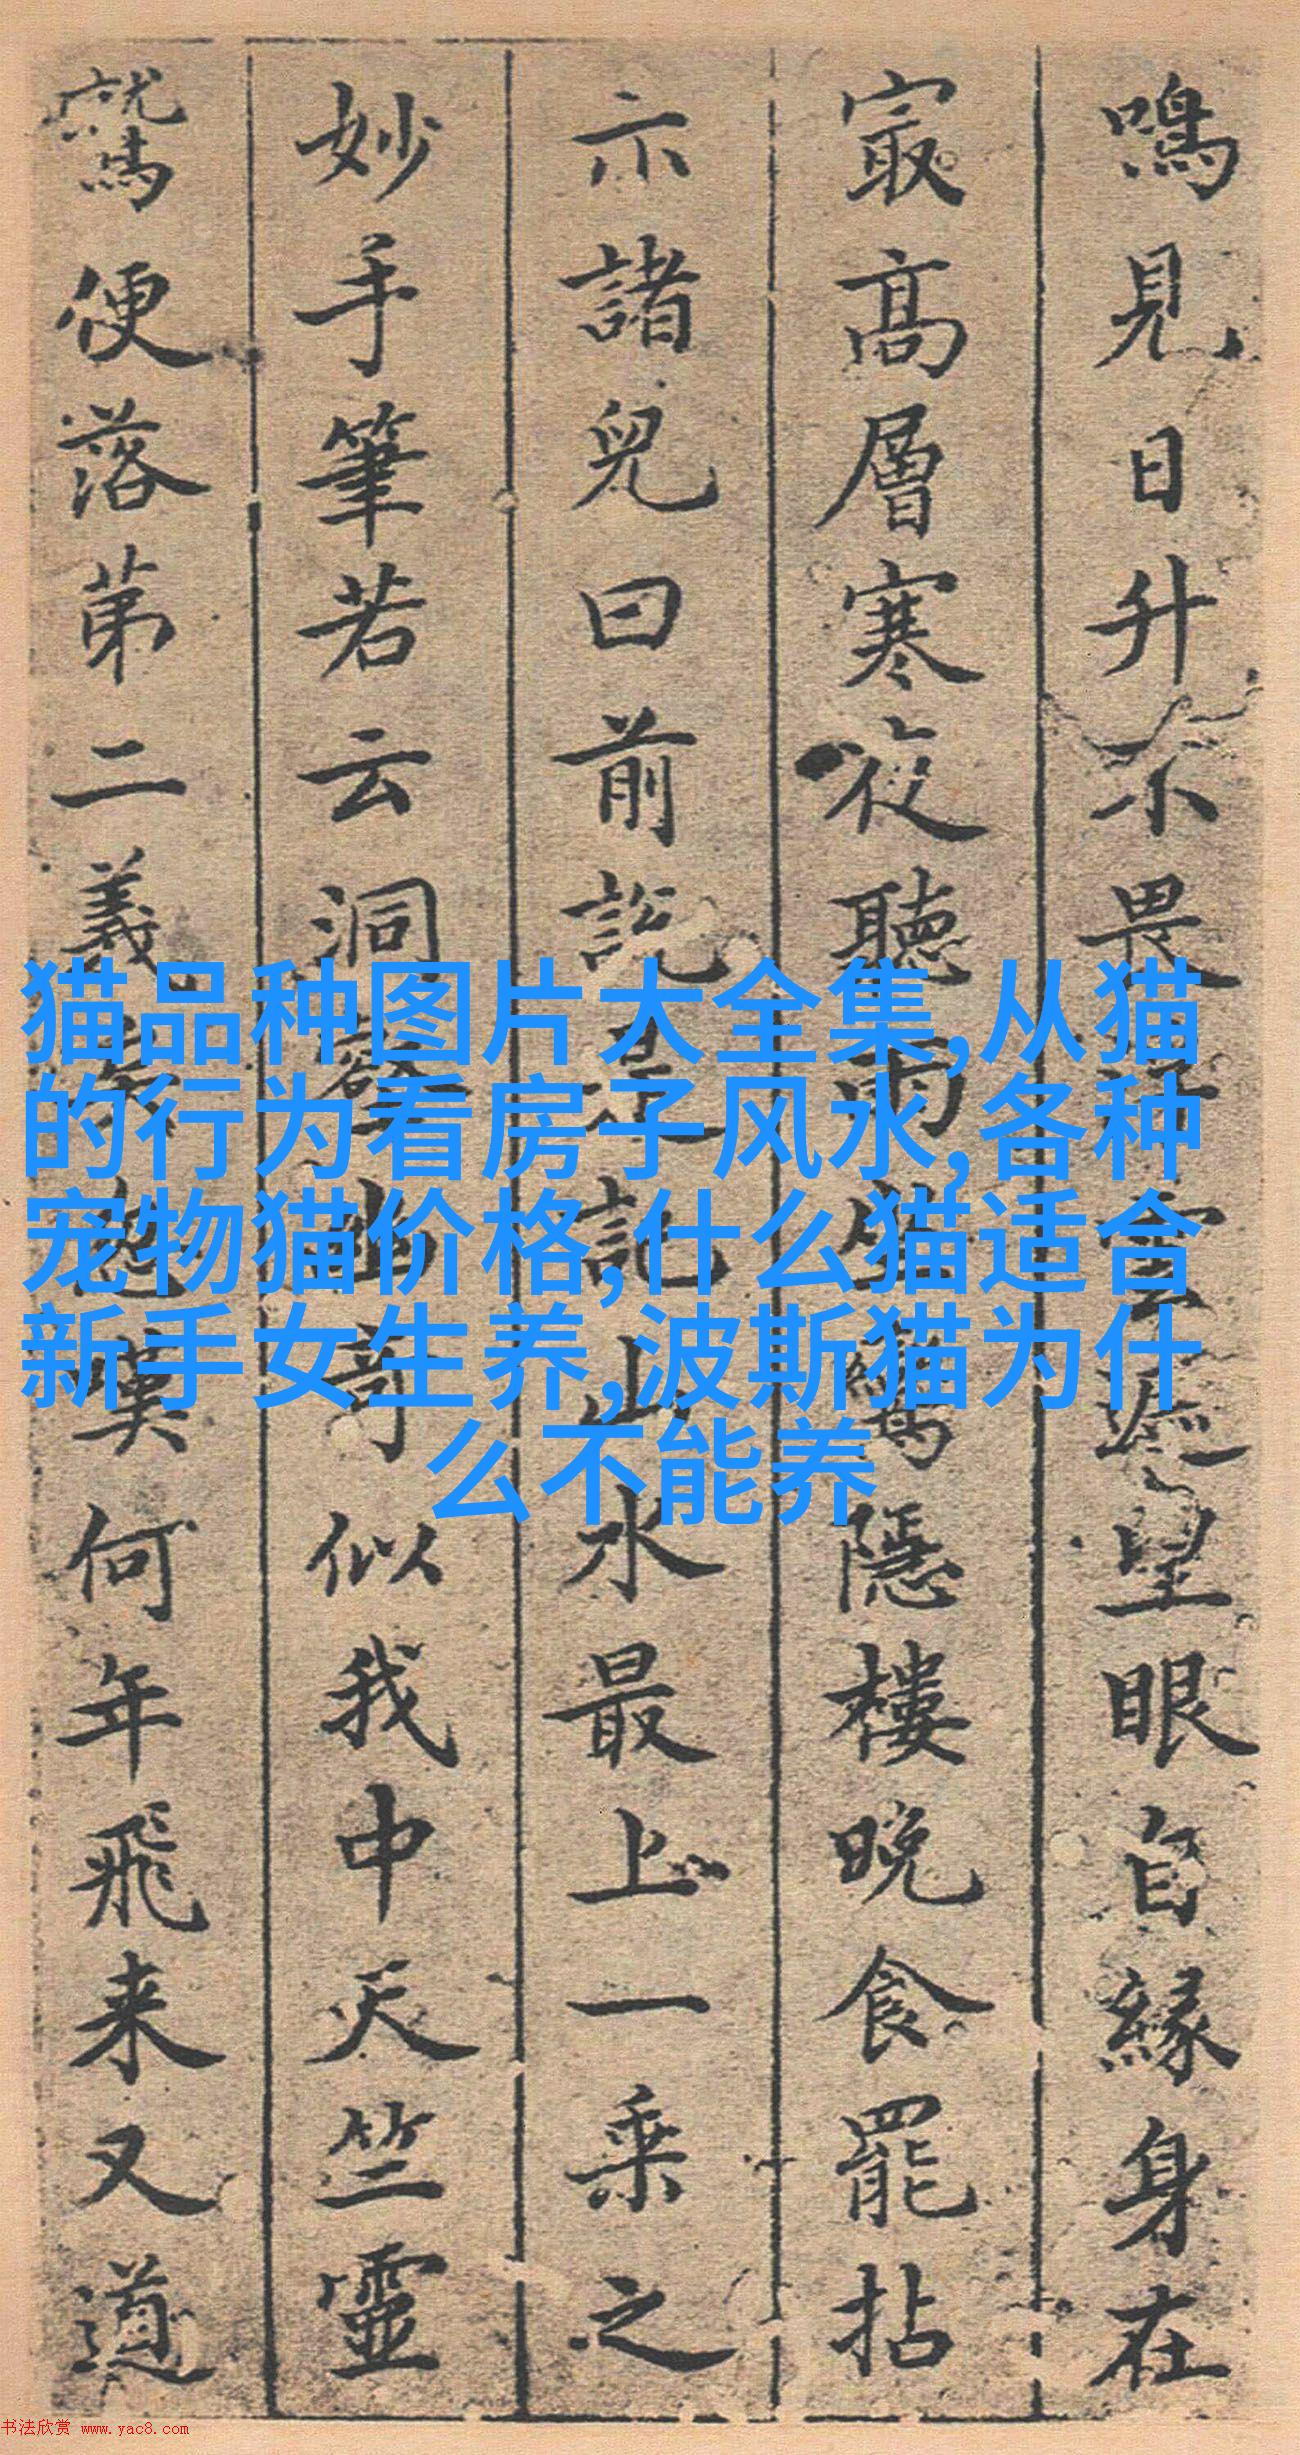 鳴見日升不畏浮雲遮望眼自緣身在
冣高層寒夜聽雨隱樓晚食罷拈
示諸兒曰前說是記山水最上一乗之
妙手筆若云洞壑幽奇似我中天竺靈
鷲便落苐二義嘆何年飛来又道
猫品种图片大全集,从猫
的行为看房子风水,各种
宠物猫价格,什么猫适合
新手女生养,波斯猫为什
么不能养
书法欣赏 www.yac8.com